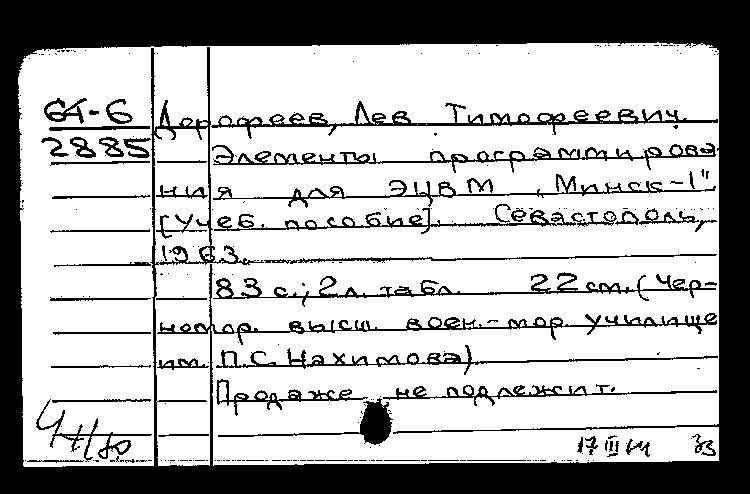 64-6
2885
Дорофеев, Лев Тимофеевич.
Элементы программирова-
ния для ЭЦВМ „Минск-1".
[Учеб. пособие]. Севастополь,
1963.
83 с.; 2 л. табл. 22 см. (Чер-
номор. высш. воен.-мор. училище
им. П.С. Нахимова)
Продаже не подлежит.
17 III 64